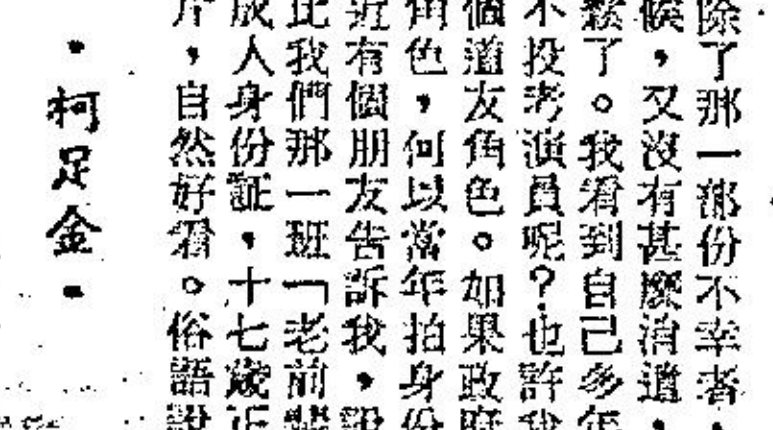 除了那一部份不幸者，
候，又沒有甚麼消遣，
鬆了。我看到自己多年
不投考演員呢？也許我
個道友角色。如果政府
角色，何以當年拍身份
近有個朋友告訴我，說
比我們那一班「老前輩
成人身份証，十七歲正
斤，自然好看。俗語說
·柯足金·